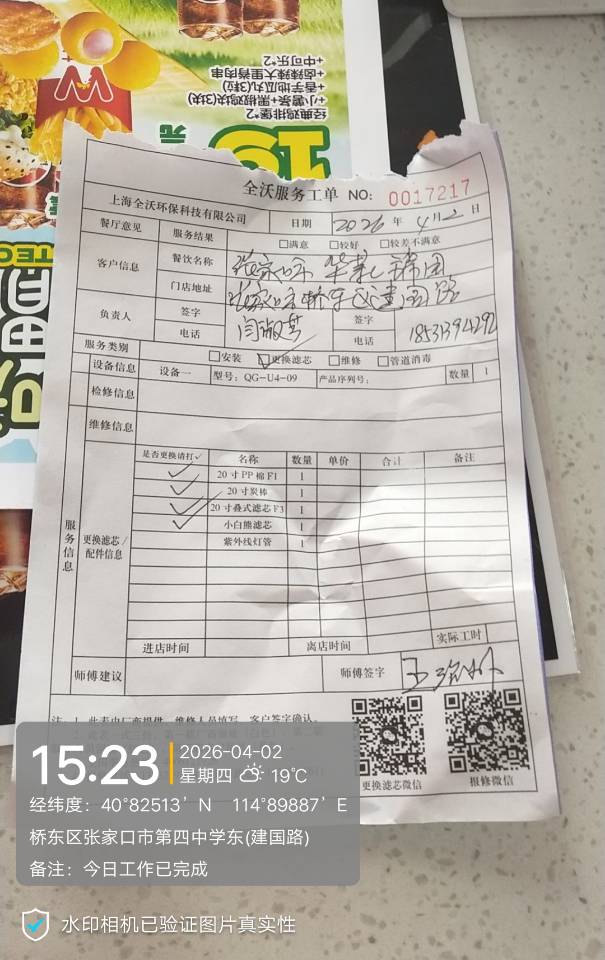 经典鸡排堡*2
+小薯条+黑椒鸡块(3块)
+香芋地瓜丸(3粒)
+卤辣辣大里脊肉串
+中可乐*2
元
全沃服务工单 NO: 0017217
上海全沃环保科技有限公司 日期 2026 年 4月2日
餐厅意见 服务结果 □满意 □较好 □较差不满意
客户信息 餐饮名称 张家口 华莱士 莆田
门店地址 张家口桥东区建国路
负责人 签字 闫淑芸 签字
电话 电话 18531394292
服务类别 □安装 ☑更换滤芯 □维修 □管道消毒
设备信息 设备一 型号: QG-U4-09 产品序列号: 数量 1
检修信息
维修信息
服务信息
更换滤芯/配件信息
是否更换请打✓ 名称 数量 单价 合计 备注
✓ 20寸PP棉F1 1
✓ 20寸炭棒 1
✓ 20寸叠式滤芯F3 1
✓ 小白熊滤芯 1
紫外线灯管 1
进店时间 离店时间 实际工时
师傅建议 师傅签字
注: 1. 此表由厂商提供, 维修人员填写, 客户签字确认。
更换滤芯微信 报修微信
15:23
2026-04-02
星期四 19℃
经纬度: 40°82513′N 114°89887′E
桥东区张家口市第四中学东(建国路)
备注: 今日工作已完成
水印相机已验证图片真实性